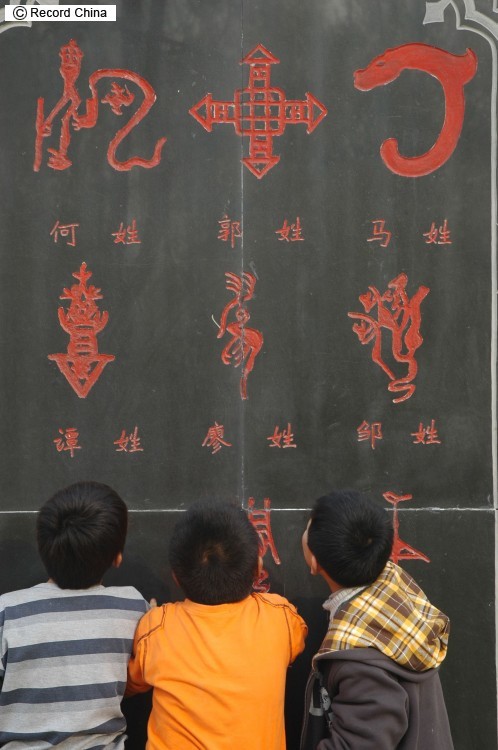 © Record China
何 姓 郭 姓 马 姓
谭 姓 廖 姓 邹 姓